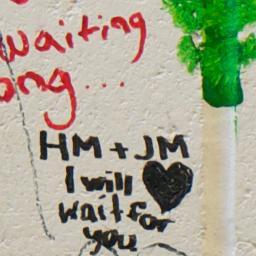 waiting
ong...
HM + JM
I will
wait for
you